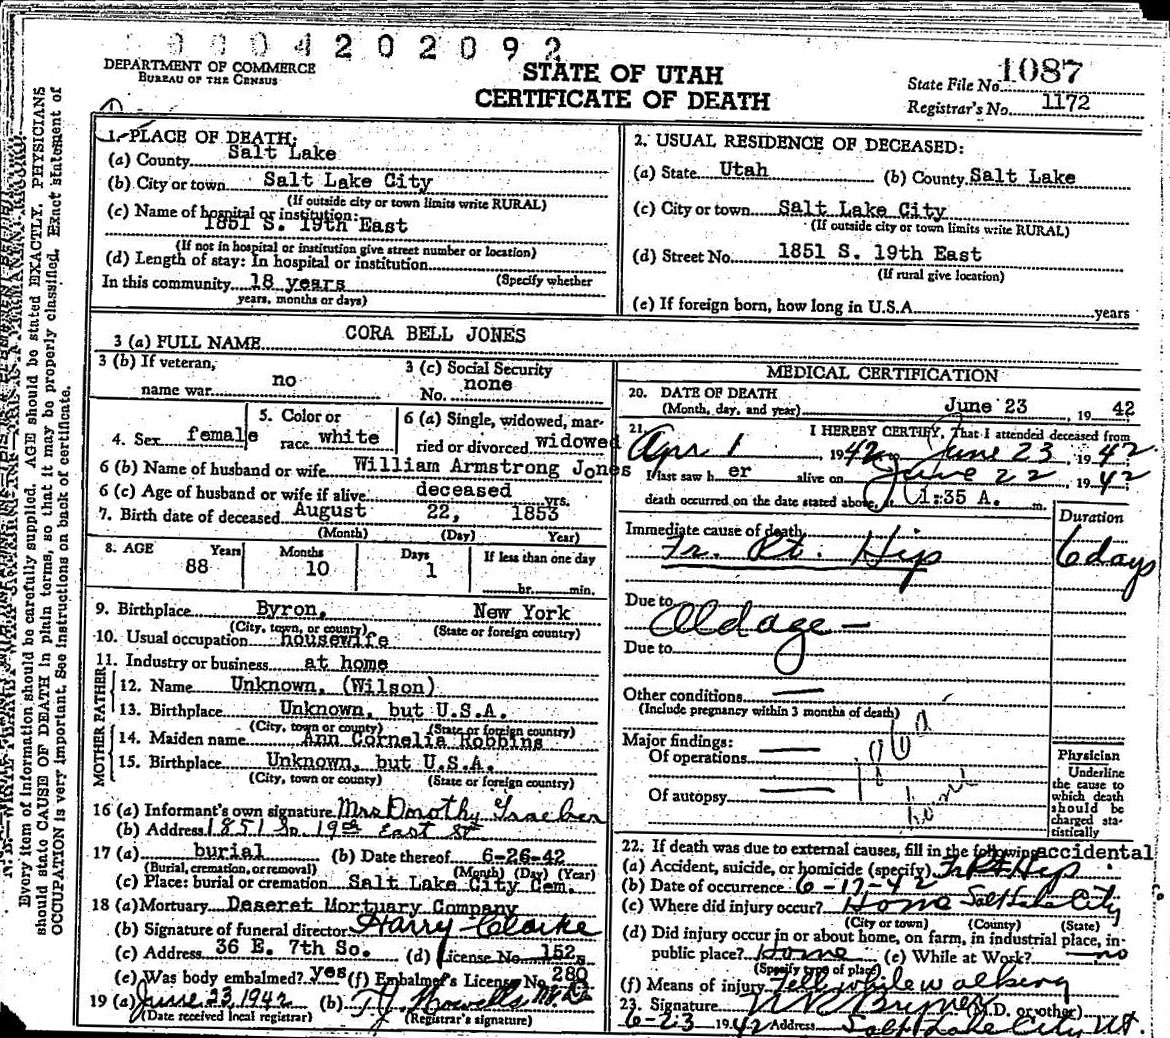 0004202092
DEPARTMENT OF COMMERCE
BUREAU OF THE CENSUS
STATE OF UTAH
CERTIFICATE OF DEATH
State File No. 1087
Registrar's No. 1172
Every item of information should be carefully supplied. AGE should be stated EXACTLY. PHYSICIANS
should state CAUSE OF DEATH in plain terms, so that it may be properly classified. Exact statement of
OCCUPATION is very important. See instructions on back of certificate.
1. PLACE OF DEATH:
(a) County Salt Lake
(b) City or town Salt Lake City
(If outside city or town limits write RURAL)
(c) Name of hospital or institution:
1851 S. 19th East
(If not in hospital or institution give street number or location)
(d) Length of stay: In hospital or institution
(Specify whether
In this community 18 years
years, months or days)
2. USUAL RESIDENCE OF DECEASED:
(a) State Utah (b) County Salt Lake
(c) City or town Salt Lake City
(If outside city or town limits write RURAL)
(d) Street No. 1851 S. 19th East
(If rural give location)
(e) If foreign born, how long in U.S.A. years
3 (a) FULL NAME CORA BELL JONES
3 (b) If veteran,
name war no
3 (c) Social Security
No. none
4. Sex female
5. Color or
race white
6 (a) Single, widowed, mar-
ried or divorced widowed
6 (b) Name of husband or wife William Armstrong Jones
6 (c) Age of husband or wife if alive deceased yrs.
7. Birth date of deceased August 22, 1853
(Month) (Day) Year)
8. AGE Years Months Days If less than one day
88 10 1
hr. min.
9. Birthplace Byron, New York
(City, town, or county) (State or foreign country)
10. Usual occupation housewife
11. Industry or business at home
FATHER
12. Name Unknown, (Wilson)
13. Birthplace Unknown, but U.S.A.
(City, town or county) (State or foreign country)
MOTHER
14. Maiden name Ann Cornelia Robbins
15. Birthplace Unknown, but U.S.A.
(City, town or county) (State or foreign country)
16 (a) Informant's own signature Mrs Dorothy
(b) Address 1851 So. 19th East St
17 (a) burial (b) Date thereof 6-26-42
(Burial, cremation, or removal) (Month) (Day) (Year)
(c) Place: burial or cremation Salt Lake City Cem.
18 (a) Mortuary Deseret Mortuary Company
(b) Signature of funeral director Harry Clarke
(c) Address 36 E. 7th So. (d) License No. 152
(e) Was body embalmed? yes (f) Embalmer's License No. 280
19 (a) June 23, 1942 (b) T.J. Howells M.D.
(Date received local registrar) (Registrar's signature)
MEDICAL CERTIFICATION
20. DATE OF DEATH
(Month, day, and year) June 23, 1942
21. I HEREBY CERTIFY, That I attended deceased from
Apr 1, 1942, June 23, 1942
I last saw her alive on June 22, 1942
death occurred on the date stated above, 1:35 A. m.
Duration
Immediate cause of death
Fr. Rt. Hip 6 days
Due to Old age —
Due to
Other conditions —
(Include pregnancy within 3 months of death)
Major findings:
Of operations —
Of autopsy —
Physician
Underline
the cause to
which death
should be
charged sta-
tistically
22. If death was due to external causes, fill in the following: accidental
(a) Accident, suicide, or homicide (specify) Fr Rt Hip
(b) Date of occurrence 6-17-42
(c) Where did injury occur? Home Salt Lake City
(City or town) (County) (State)
(d) Did injury occur in or about home, on farm, in industrial place, in
public place? Home (e) While at Work? no
(Specify type of place)
(f) Means of injury Fell while walking
23. Signature (M.D. or other)
6-23 1942 Address Salt Lake City Ut.